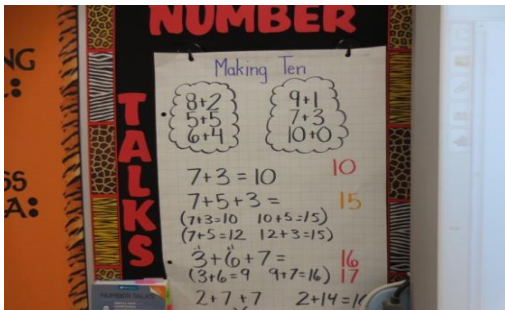 NG
SS
A:
NUMBER
TALKS
Making Ten
8+2
5+5
6+4
9+1
7+3
10+0
7+3=10 10
7+5+3= 15
(7+3=10 10+5=15)
(7+5=12 12+3=15)
3+6+7= 16
(3+6=9 9+7=16) 17
2+7+7 2+14=
NUMBER TALKS